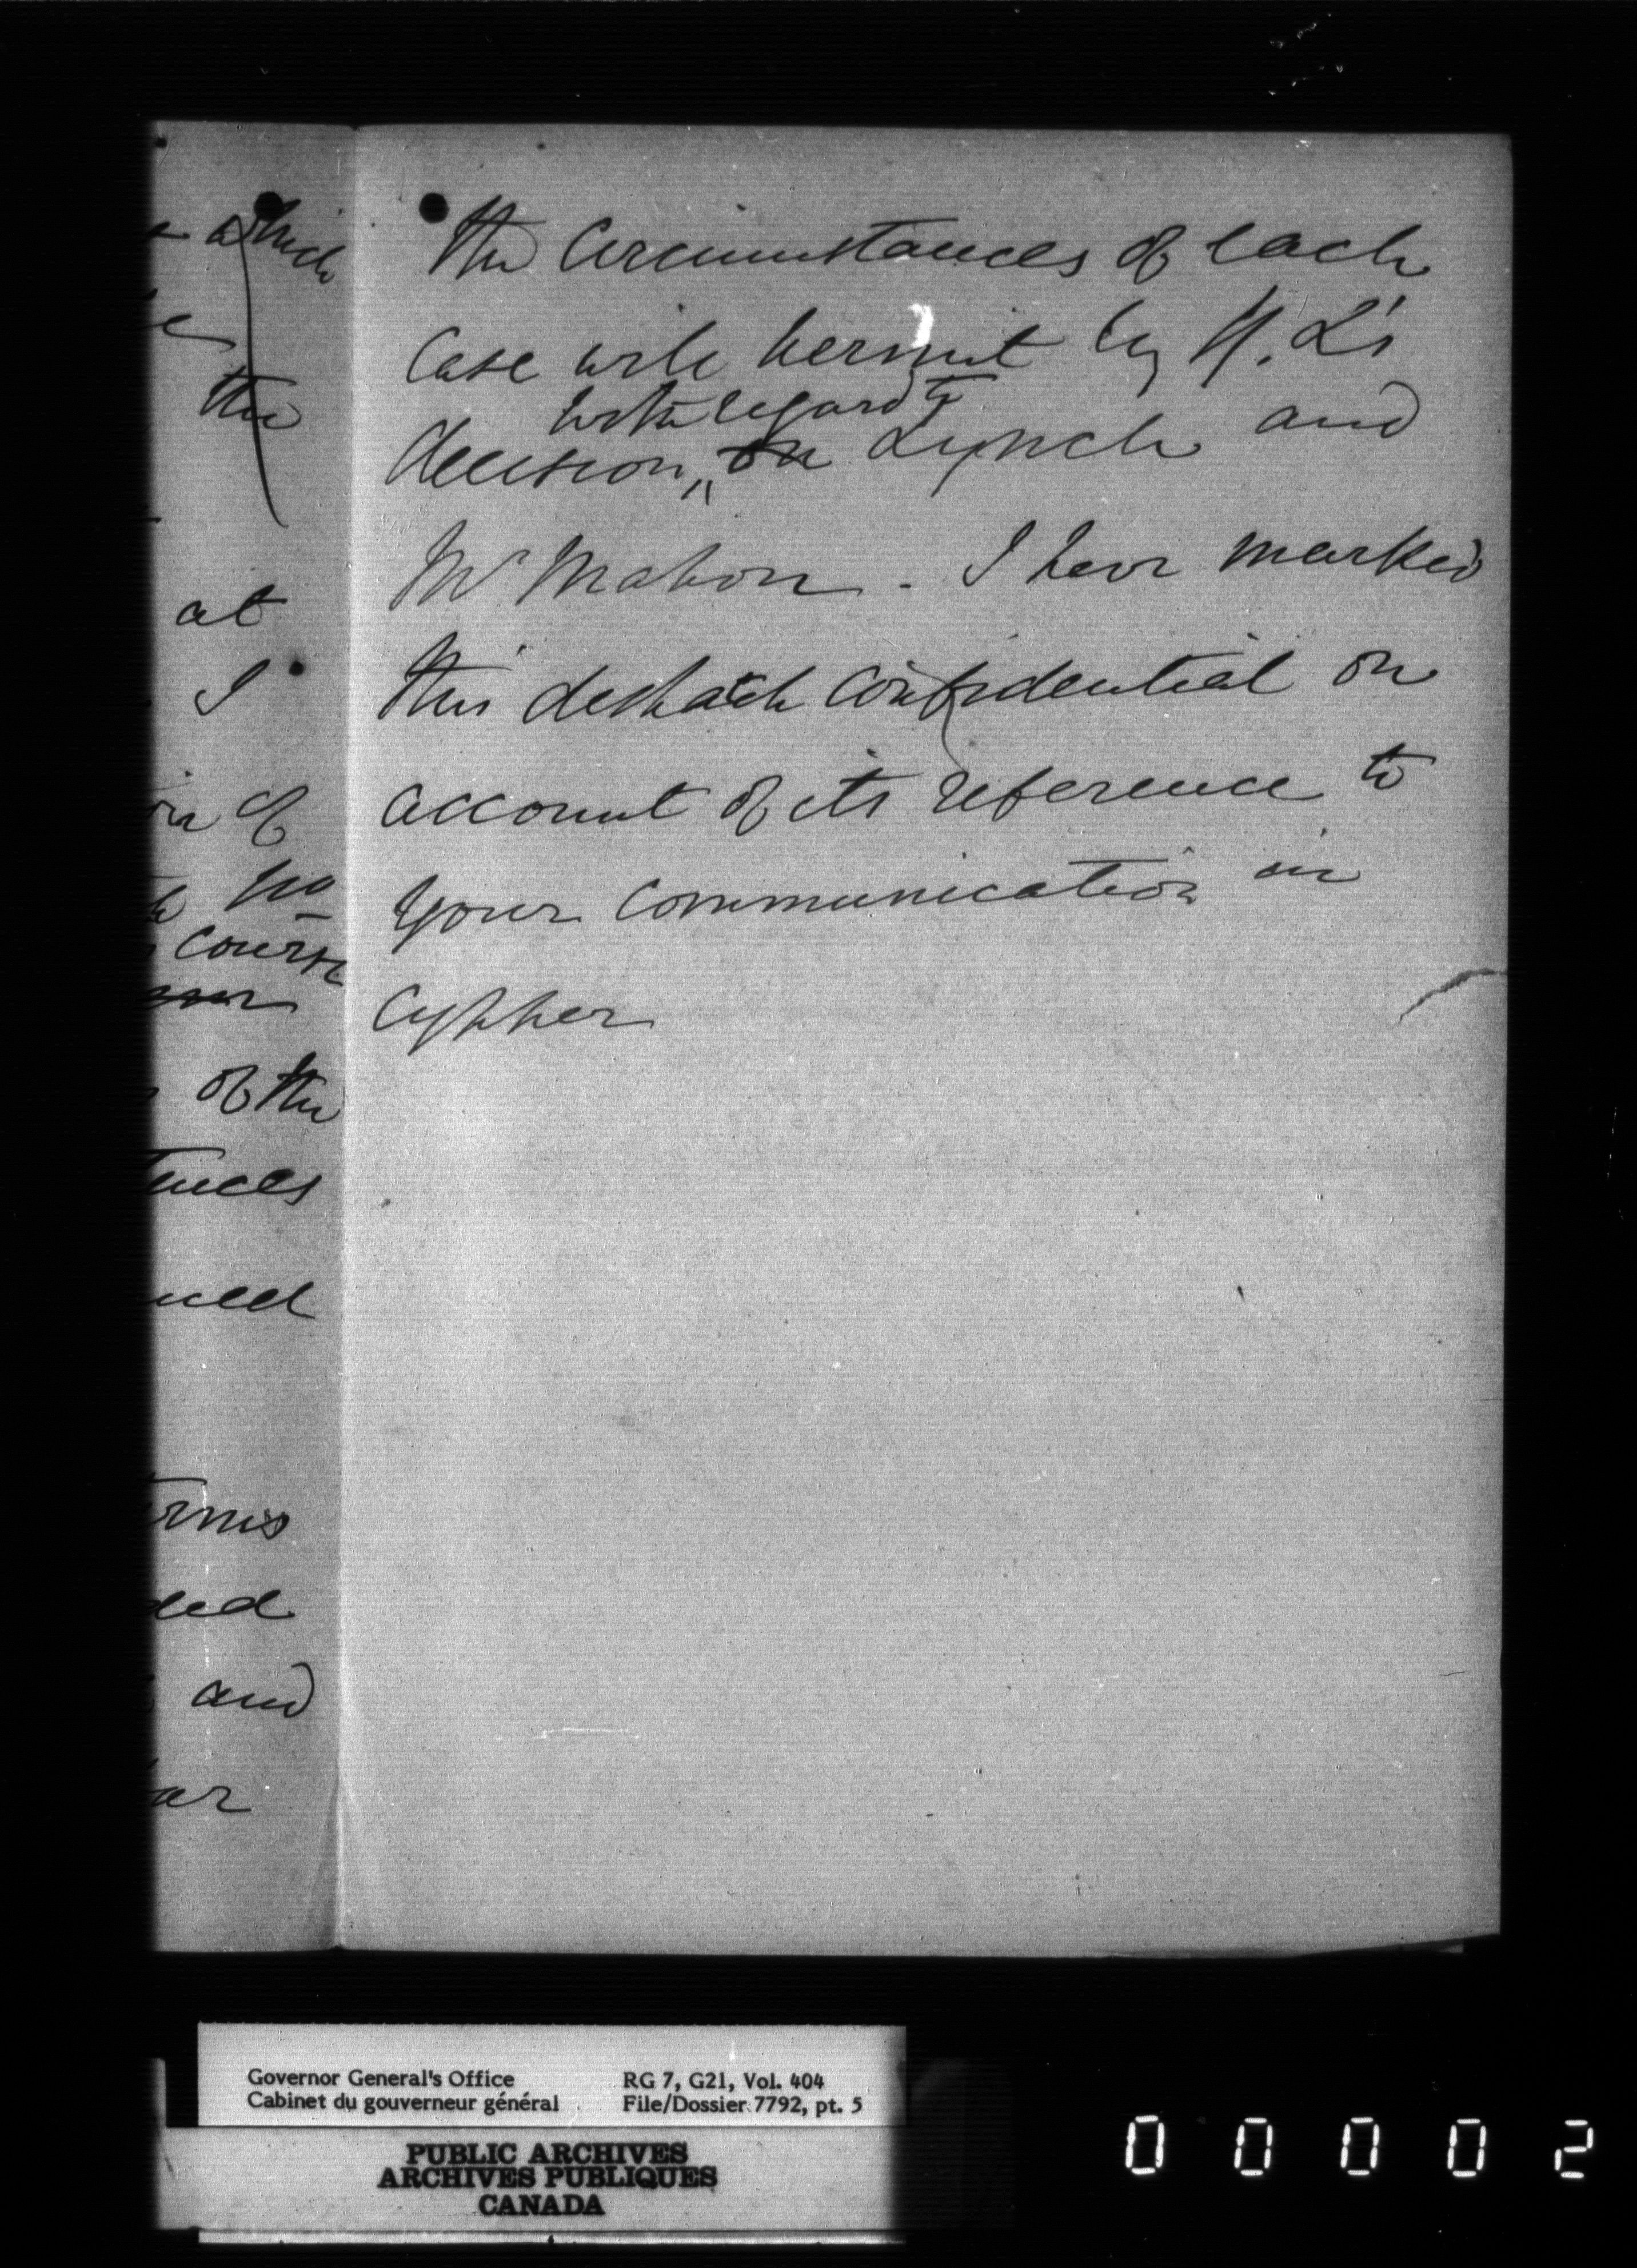 which
the
at
I
of
no
course
of the
and
the Circumstances of each
Case will permit by H. L's
with regard to
decision, on Lynch and
McMahon. I have marked
this despatch confidential on
account of its reference to
your communication in
Cypher
Governor General's Office
Cabinet du gouverneur général
RG 7, G21, Vol. 404
File/Dossier 7792, pt. 5
PUBLIC ARCHIVES
ARCHIVES PUBLIQUES
CANADA
00002